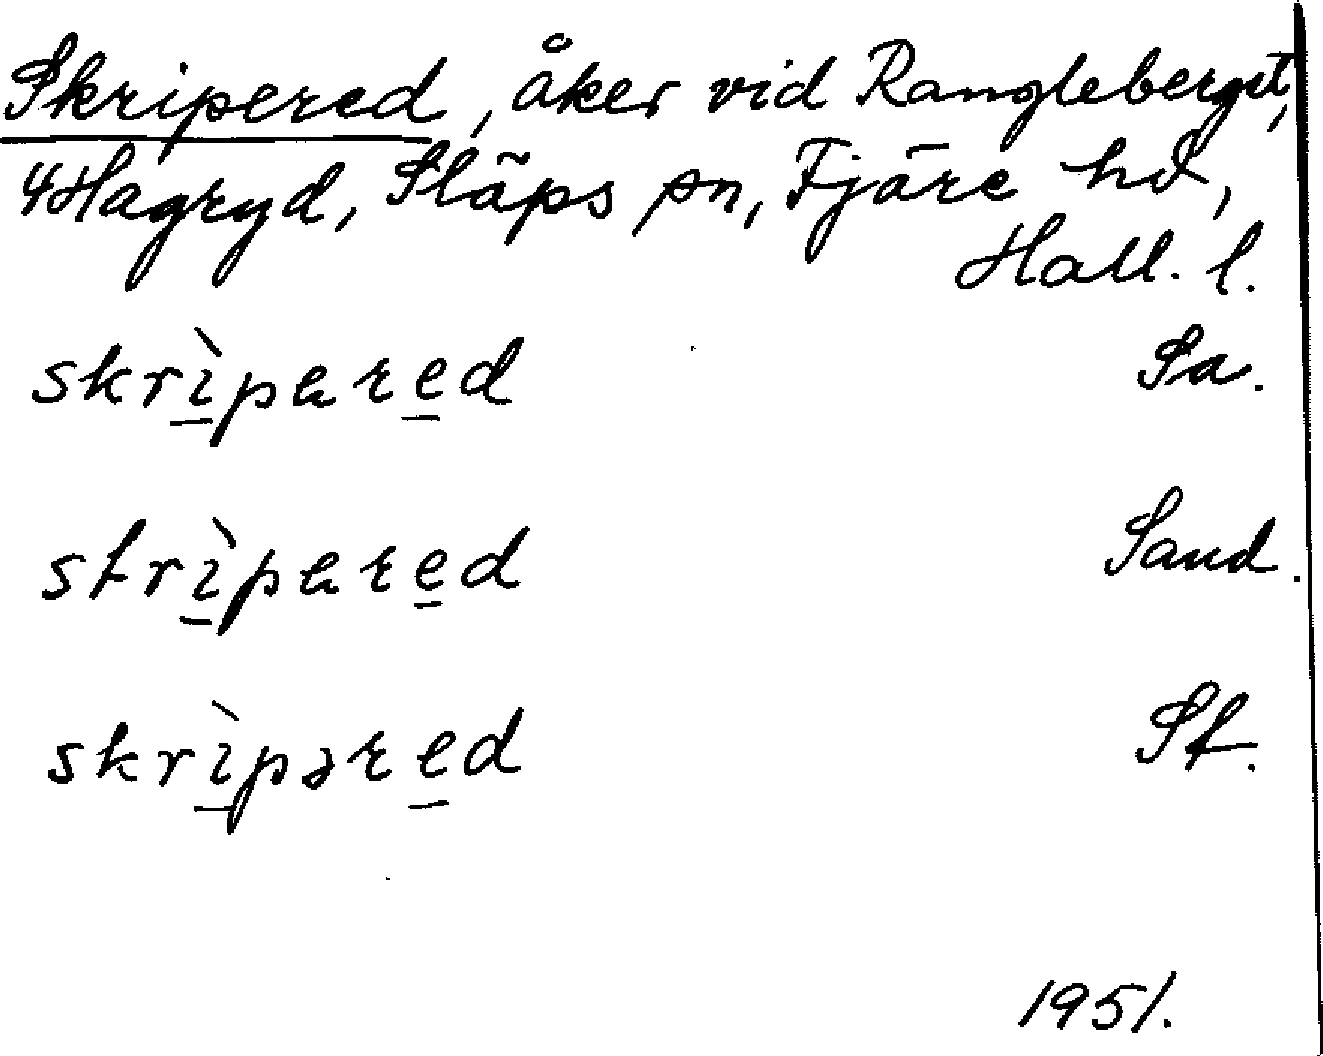 Skripered, åker vid Rangleberget,
4 Hagryd, Släps sn, Fjäre hd,
Hall. l.
skrìpered Sa.
skrìpered Sand.
skrìpəred Sf.
1951.